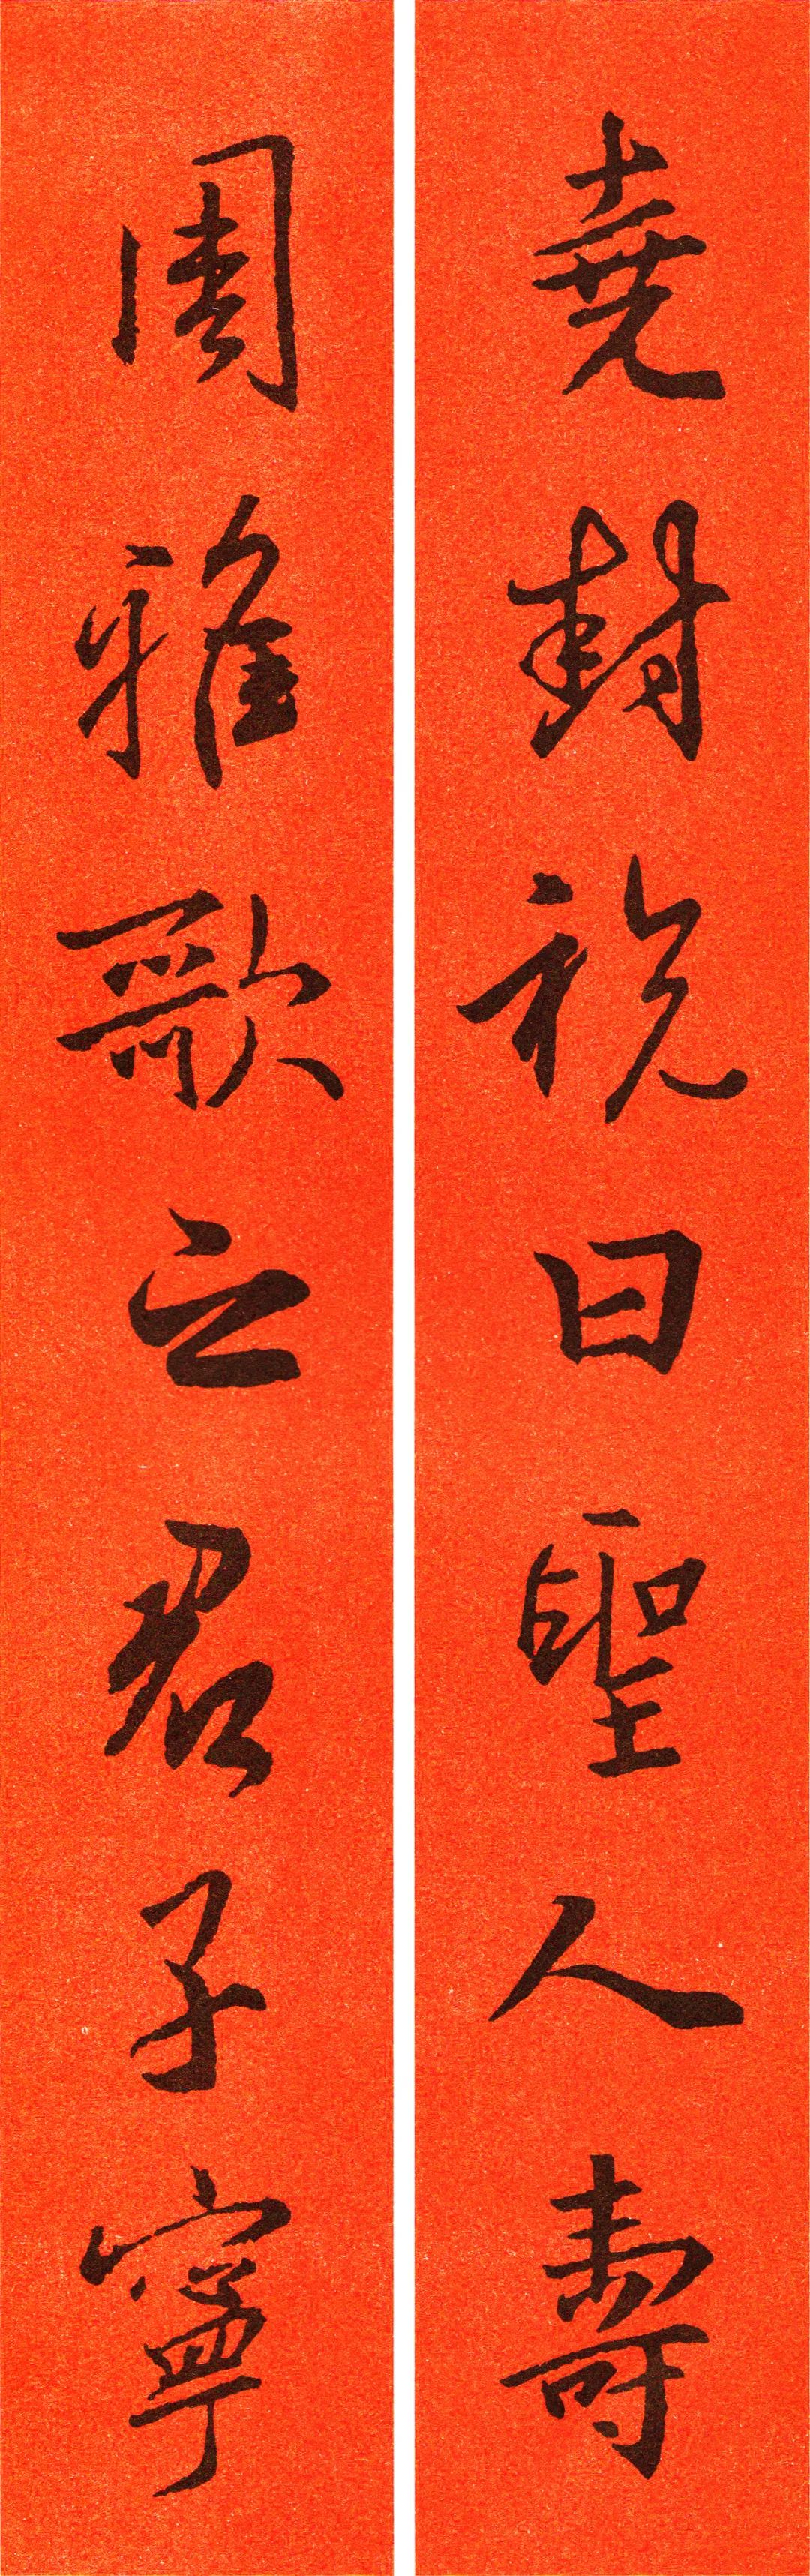 堯封祝曰聖人壽
周雅歌之君子寧